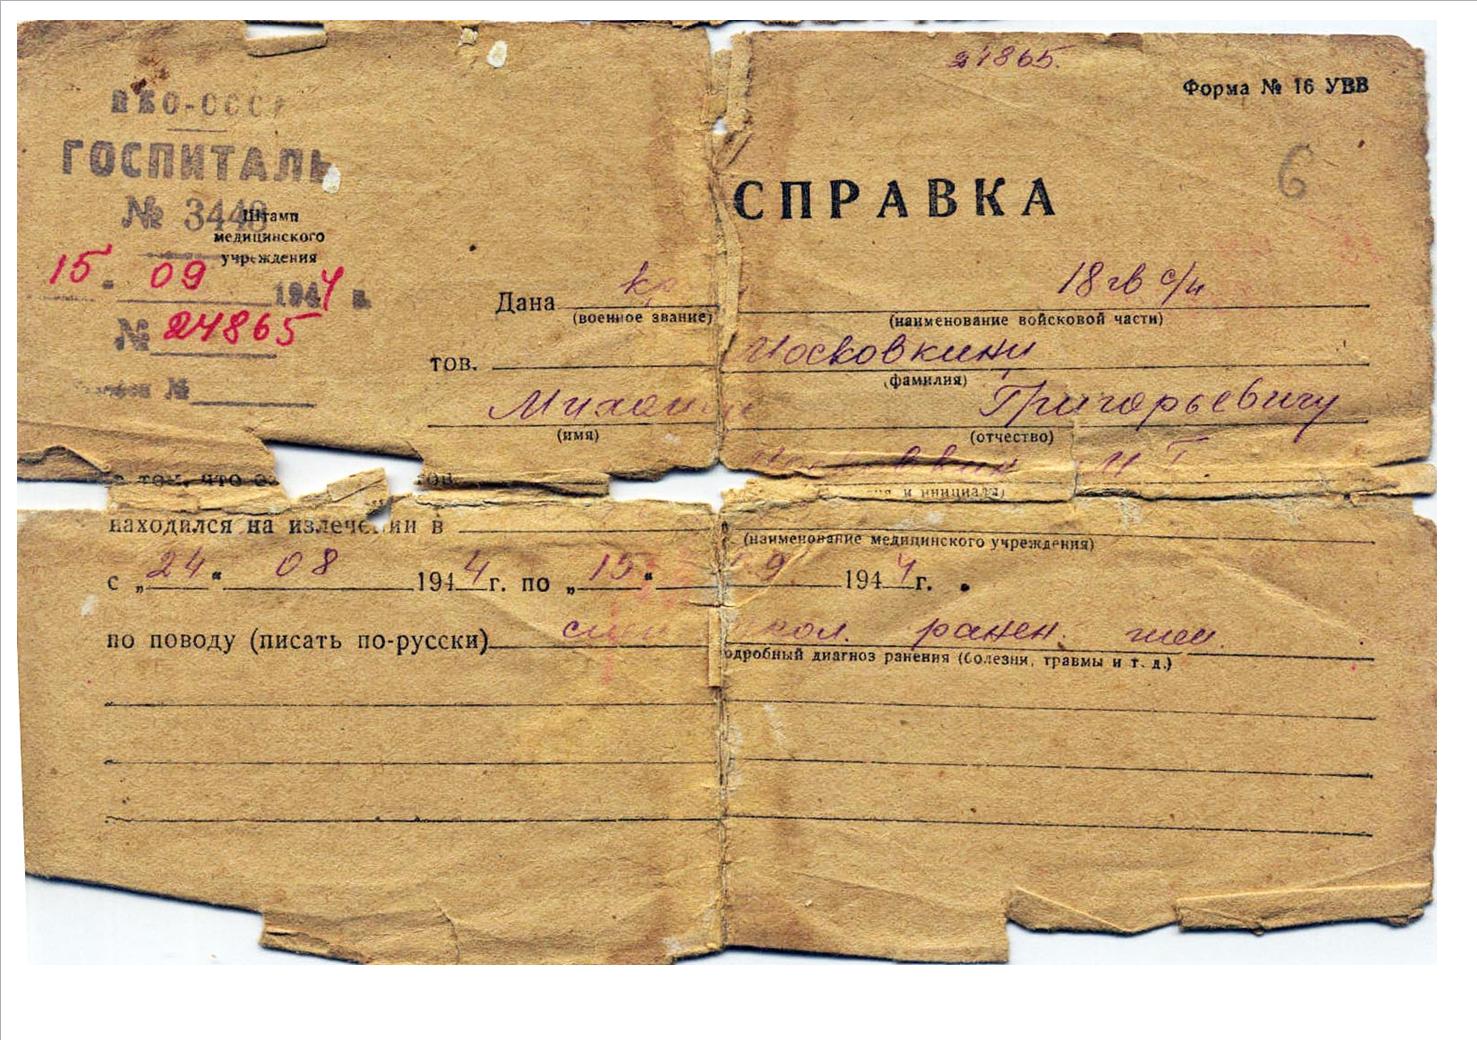 24865.
Форма № 16 УВВ
НКО-СССР
ГОСПИТАЛЬ
№ 3448
6
Штамп
медицинского
учреждения
СПРАВКА
15 09 1944 г.
№ 24865
№
Дана 18 гв с/п
(военное звание) (наименование войсковой части)
тов. Московкину
(фамилия)
Михаилу Григорьевичу
(имя) (отчество)
о том, что он тов. Московкин М. Г.
и инициалы)
находился на излечении в
(наименование медицинского учреждения)
с „24“ 08 1944 г. по „15“ 09 1944 г.
по поводу (писать по-русски) ранен.
подробный диагноз ранения (болезни, травмы и т. д.)